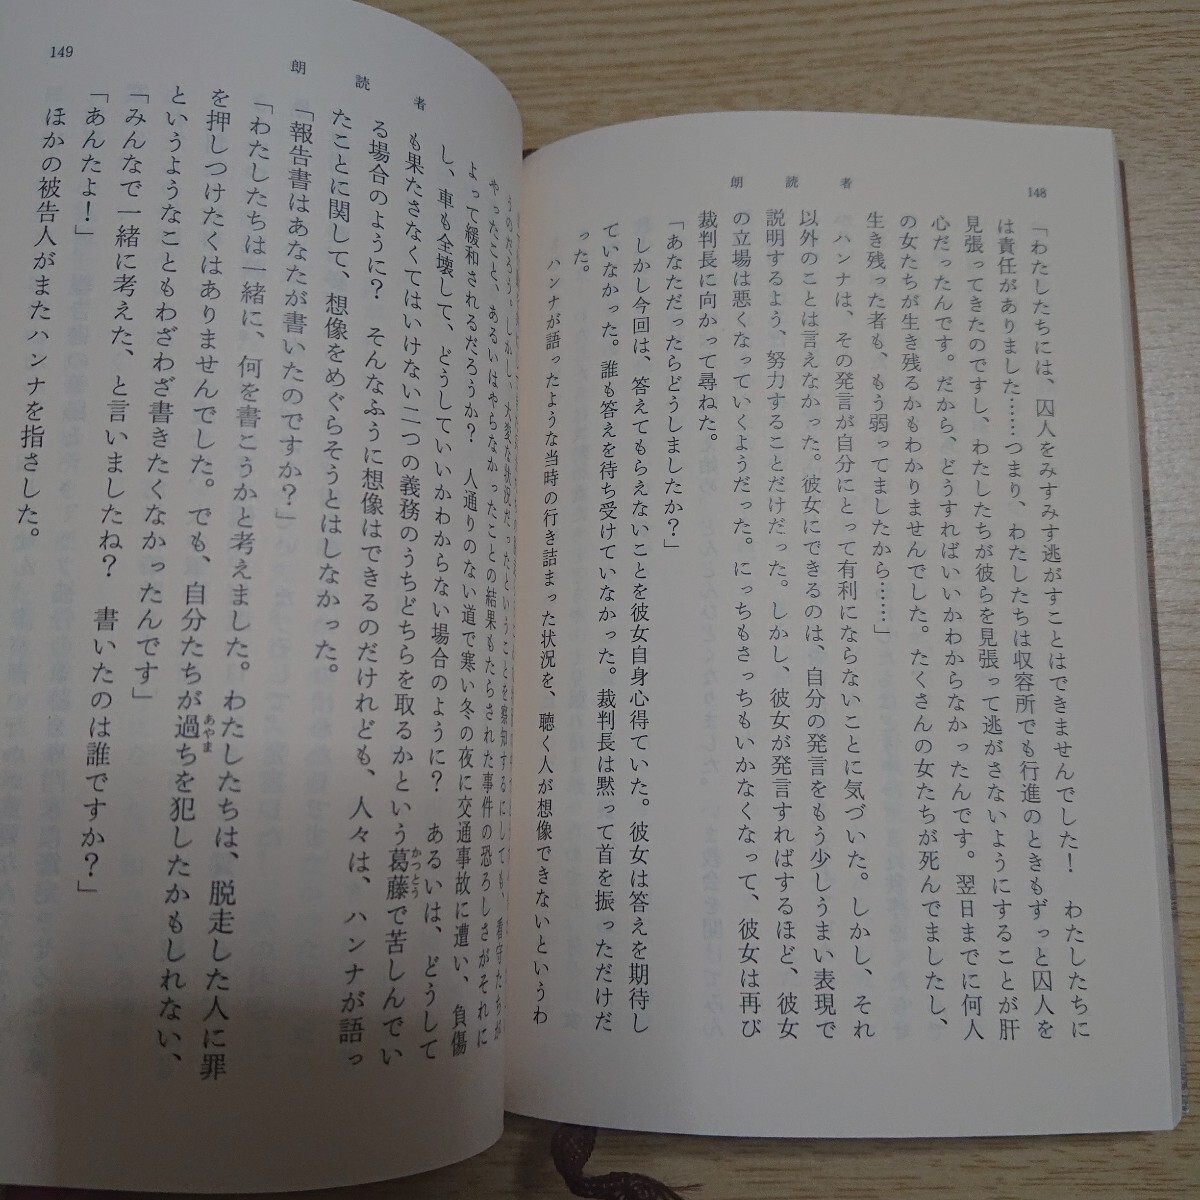 148
朗読者
「わたしたちには、囚人をみすみす逃がすことはできませんでした！　わたしたちに
は責任がありました……つまり、わたしたちは収容所でも行進のときもずっと囚人を
見張ってきたのですし、わたしたちが彼らを見張って逃がさないようにすることが肝
心だったんです。だから、どうすればいいかわからなかったんです。翌日までに何人
の女たちが生き残るかもわかりませんでした。たくさんの女たちが死んでましたし、
生き残った者も、もう弱ってましたから……」
ハンナは、その発言が自分にとって有利にならないことに気づいた。しかし、それ
以外のことは言えなかった。彼女にできるのは、自分の発言をもう少しうまい表現で
説明するよう、努力することだけだった。しかし、彼女が発言すればするほど、彼女
の立場は悪くなっていくようだった。にっちもさっちもいかなくなって、彼女は再び
裁判長に向かって尋ねた。
「あなただったらどうしましたか？」
しかし今回は、答えてもらえないことを彼女自身心得ていた。彼女は答えを期待し
ていなかった。誰も答えを待ち受けていなかった。裁判長は黙って首を振っただけだ
った。
ハンナが語ったような当時の行き詰まった状況を、聴く人が想像できないというわ
149
朗読者
うのだろう。しかし、大変な状況だったということを察知するにしても、看守たちが
やったこと、あるいはやらなかったことの結果もたらされた事件の恐ろしさがそれに
よって緩和されるだろうか？　人通りのない道で寒い冬の夜に交通事故に遭い、負傷
し、車も全壊して、どうしていいかわからない場合のように？　あるいは、どうして
も果たさなくてはいけない二つの義務のうちどちらを取るかという葛藤で苦しんでい
る場合のように？　そんなふうに想像はできるのだけれども、人々は、ハンナが語っ
たことに関して、想像をめぐらそうとはしなかった。
「報告書はあなたが書いたのですか？」
「わたしたちは一緒に、何を書こうかと考えました。わたしたちは、脱走した人に罪
を押しつけたくはありませんでした。でも、自分たちが過ちを犯したかもしれない、
というようなこともわざわざ書きたくなかったんです」
「みんなで一緒に考えた、と言いましたね？　書いたのは誰ですか？」
「あんたよ！」
ほかの被告人がまたハンナを指さした。